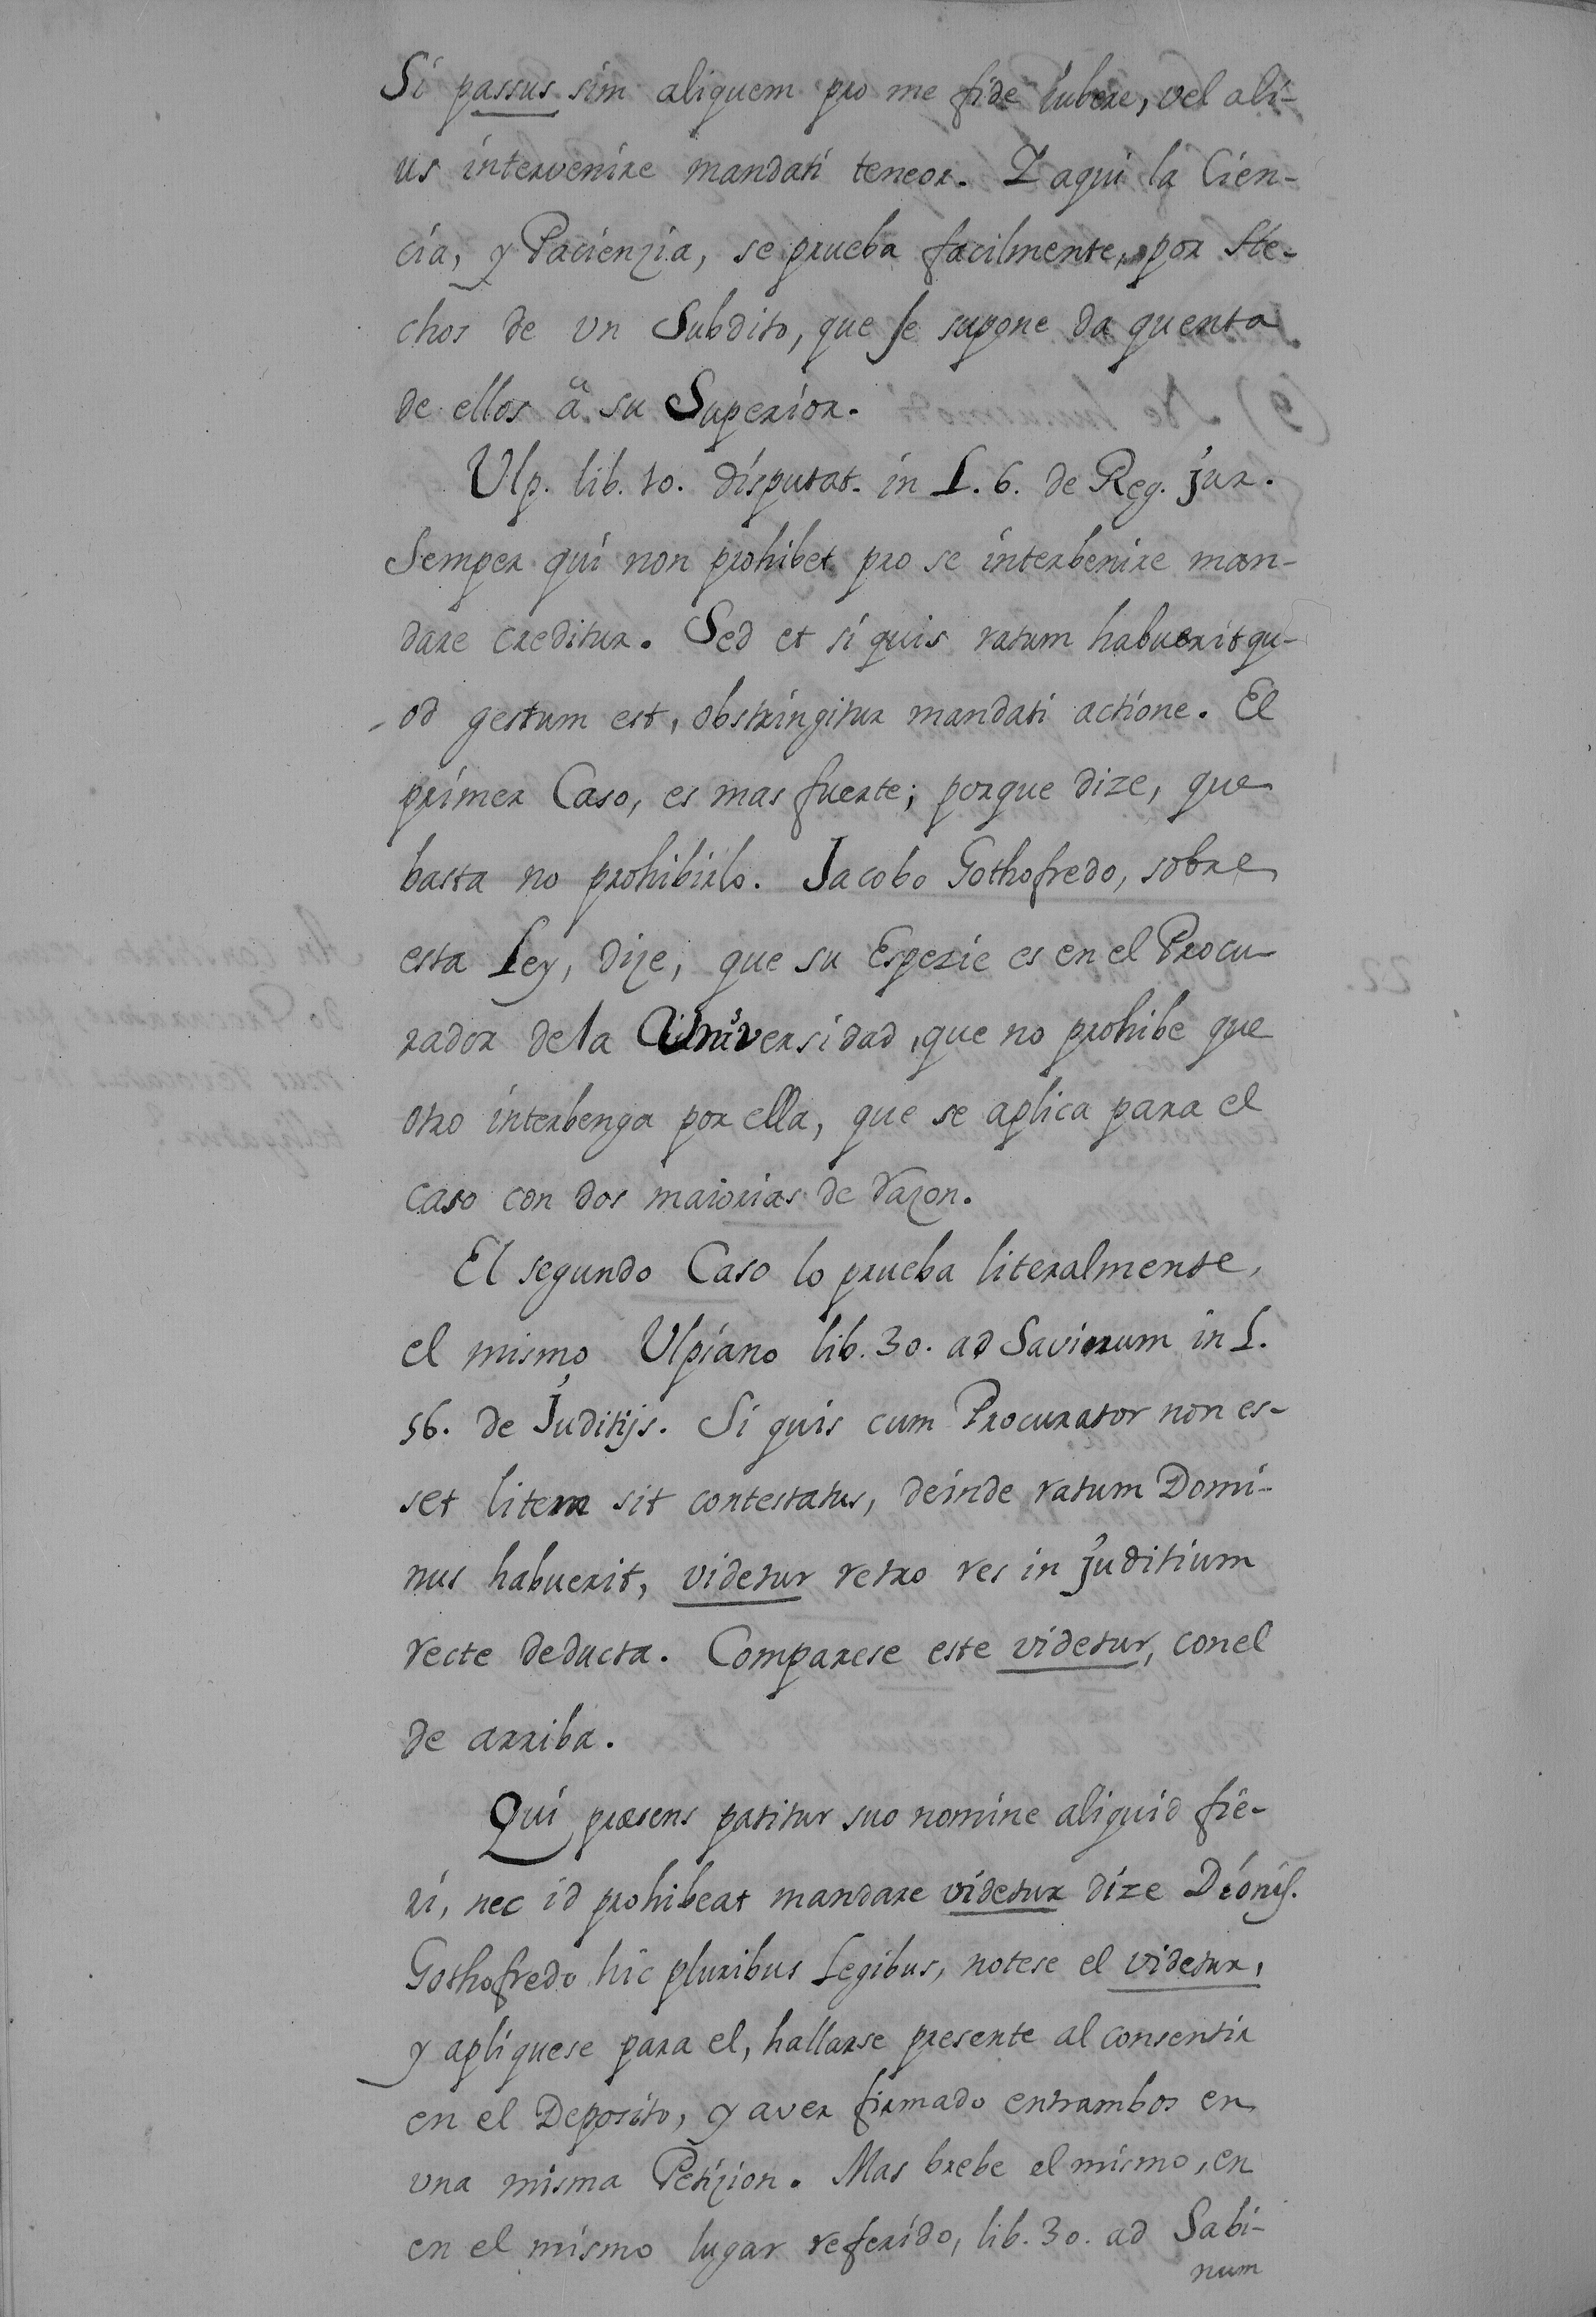 Si passus sim aliquem pro me fide iubere, vel ali-
us intervenire mandati teneor. Y aqui la Cien-
cia, y Pacienzia, se prueba facilmente, por He-
chos de vn Subdito, que se supone da quenta
de ellos â su Superior.
Vlp. lib. 10. disputat. in L. 6. de Reg. jur.
Semper qui non prohibet pro se interbenire man-
dare creditur. Sed et si quis ratum habuerit qu-
od gestum est, obstringitur mandati actione. El
primer Caso, es mas fuerte; porque dize, que
basta no prohibirlo. Jacobo Gothofredo, sobre
esta Ley, dize, que su Espezie es en el Procu-
rador de la Universidad, que no prohibe que
otro interbenga por ella, que se aplica para el
caso con dos maiorias de razon.
El segundo Caso lo prueba literalmente,
el mismo Ulpiano lib. 30. ad Savinum in L.
56. de Juditijs. Si quis cum Procurator non es-
set litem sit contestatus, deinde ratum Domi-
nus habuerit, videtur retro res in juditium
recte deducta. Comparese este videtur, con el
de arriba.
Qui præsens patitur suo nomine aliquid fie-
ri, nec id prohibeat mandare videtur dize Dionis.
Gothofredo hic pluribus Legibus, notese el videtur,
y apliquese para el, hallarse presente al consentir
en el Deposito, y aver firmado entrambos en
vna misma Petizion. Mas brebe el mismo, en
en el mismo lugar referido, lib. 30. ad Sabi-
num